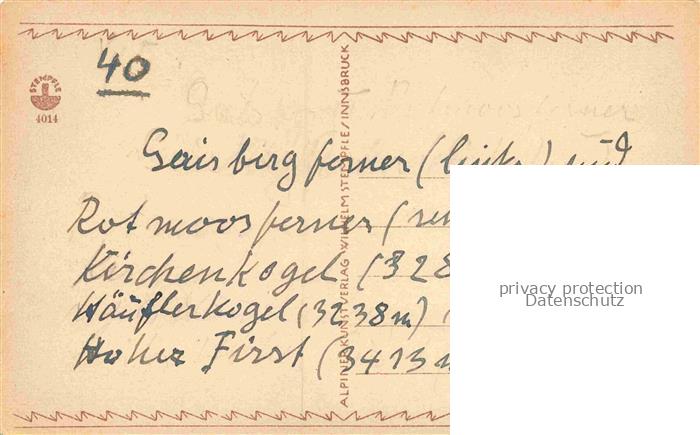 40
STEMPFLE
4014
Gaisbergferner (links) und
Rotmoosferner (
Kirchenkogel (328
Häuflerkogel (3238m)
Hoher First (3413 m
ALPINER KUNSTVERLAG WILHELM STEMPFLE/INNSBRUCK
privacy protection
Datenschutz